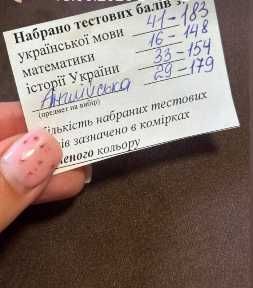 Набрано тестових балів з:
української мови 41 – 183
математики 16 – 148
історії України 33 – 154
Англійська 29 – 179
(предмет на вибір)
кількість набраних тестових
зазначено в комірках
кольору